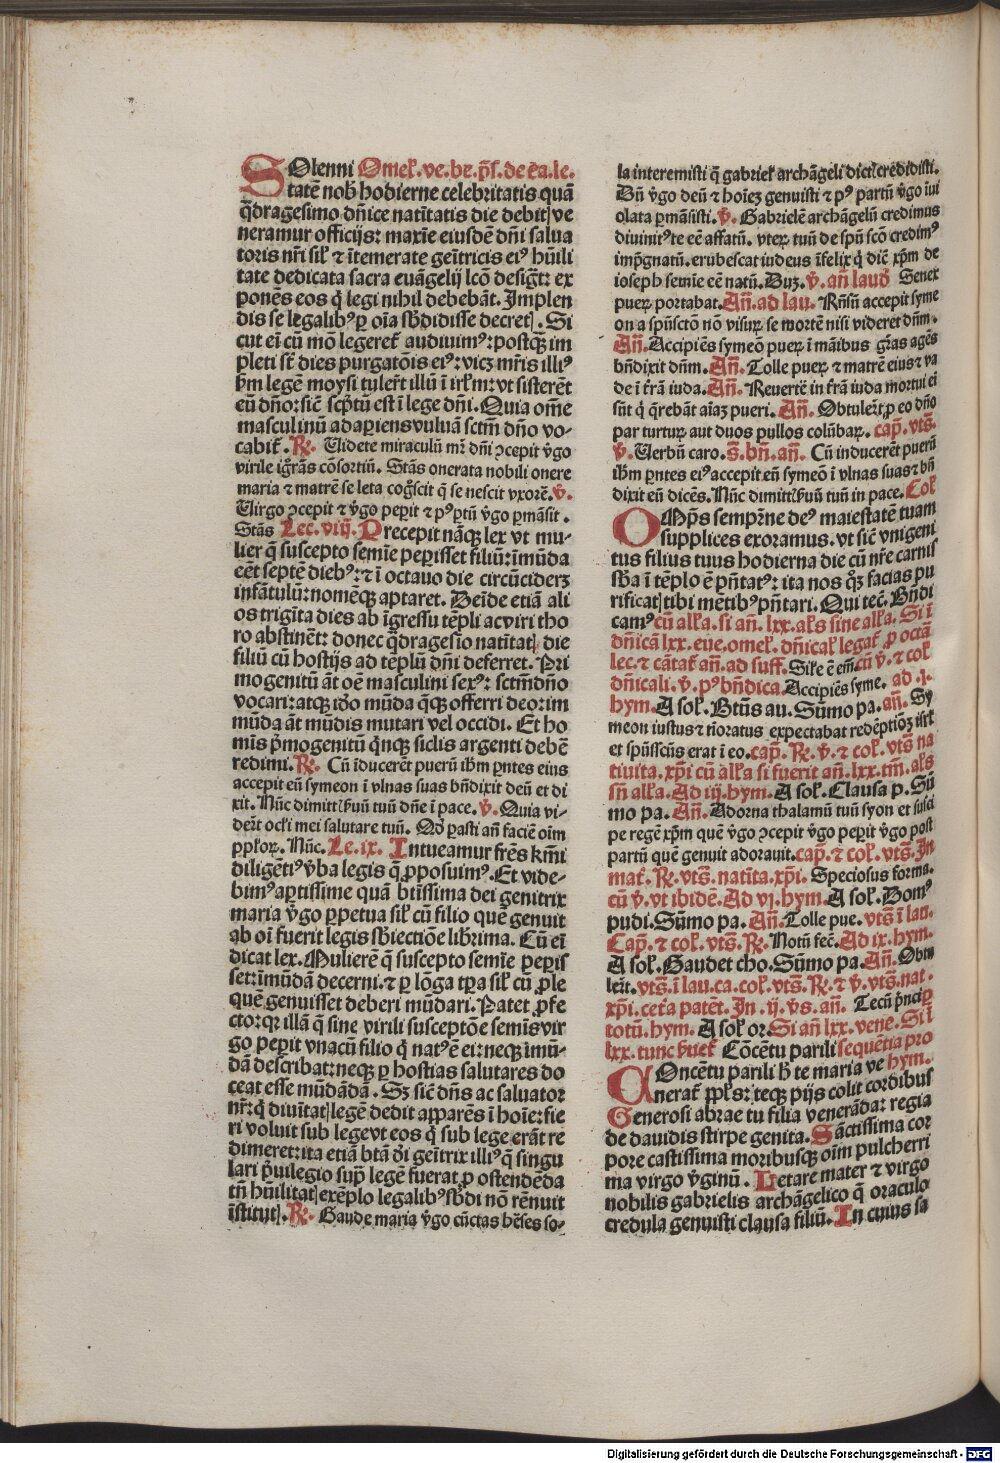 SOlenni Omel̄.ve.br̄.p̄s.de ēa.le.
tatē nob̄ hodierne celebritatis quā
q̄dragesimo dn̄ice natītatis die debitꝭ ve
neramur officijs: maxīe eiusdē dn̄i salua
toris nr̄i sil̄ ⁊ ītemerate genītricis eiꝰ hūili
tate dedicata sacra euāgelij lcō desigt̄: ex
ponēs eos q̄ legi nihil debebāt. Implen
dis se legalibꝰ ꝑ oīa sb̄didisse decretꝭ. Si
cut eī cū mō legeret̄ audiuimꝰ: postꝙ̄ im
pleti st̄ dies purgatōis eiꝰ: vicꝫ mr̄is illiꝰ
ẜm legē moysi tuler̄t illū ī irl̄m: vt sisterēt
eū dn̄o: sic̄ scp̄tū est ī lege dn̄i. Quia om̄e
masculinū adaꝑiens vuluā sctm̄ dn̄o vo-
cabit̄. R̄. Uidete miraculū mr̄ dn̄i ꝯcepit v̄go
virile igr̄ās cōsortiū. Stās onerata nobili onere
maria ⁊ matrē se leta cogr̄scit q̄ se nescit vxorē. v̄.
Uirgo ꝯcepit ⁊ v̄go peꝑit ⁊ pꝰ ꝑtū v̄go ꝑmāsit.
Stās Lec.viij. Precepit nāqꝫ lex vt mu-
lier q̄ suscepto semīe peꝑisset filiū: īmūda
eēt septē diebꝰ: ⁊ ī octauo die circūciderꝫ
infātulū: nomēqꝫ aptaret. Deīde etiā ali
os trigīta dies ab īgressu tēpli ac viri tho
ro abstinēt: donec q̄dragesīo natītatꝭ die
filiū cū hostijs ad tēplū dn̄i deferret. Pri
mogenitū āt oē masculini sexꝰ: sctm̄ dn̄o
vocari: atqꝫ id̄o mūda q̄qꝫ offerri deo: im
mūda āt mūdis mutari vel occidi. Et ho
mīs p̄mogenitū q̄nqꝫ siclis argenti debē
redimi. R̄. Cū īducerēt puerū ih̄m ꝑntes eius
accepit eū symeon ī vlnas suas bn̄dixit deū et di
xit. Nūc dimittꝭ s̄uū tuū dn̄e ī pace. v̄. Quia vi-
der̄t ocl̄i mei salutare tuū. Qd̄ ꝑasti an̄ faciē oīm
ppl̄oꝝ. Nūc. Le.ix. Intueamur frēs km̄i
diligētiꝰ v̄ba legis q̄ ꝓposuimꝰ. Et vide-
bimꝰ aꝑtissime quā btīssima dei genitrix
maria v̄go ꝑpetua sil̄ cū filio quē genuit
ab oī fuerit legis sb̄iectiōe lib̄rima. Cū eī
dicat lex. Mulierē q̄ suscepto semīe peꝑis
set: īmūdā decerni. ⁊ ꝑ lōga tꝑa sil̄ cū ꝓle
quē genuisset deberi mūdari. Patet ꝓfe
cto: qꝛ illā q̄ sine virili susceptōe semīs vir
go peꝑit vnacū filio q̄ natꝰ ē ei: neqꝫ īmū-
dā describat: neqꝫ ꝑ hostias salutares do
ceat esse mūdādā. Sꝫ sic̄ dn̄s ac saluator
nr̄: q̄ diuītatꝭ legē dedit apparēs ī hoīe: fie
ri voluit sub lege vt eos q̄ sub lege erāt re
dimeret: ita etiā btā dī genītrix illiꝰ q̄ singu
lari p̄uilegio sup̄ legē fuerat ꝓ ostendēda
tn̄ hūilitatꝭ exēplo legalibꝰ sb̄di nō rēnuit
īstitutꝭ. R̄. Gaude maria v̄go cūctas hēses so-
la interemisti q̄ gabriel̄ archāgeli dictꝭ credidisti.
Dū v̄go deū ⁊ hoīeꝫ genuisti ⁊ pꝰ partū v̄go īui
olata ꝑmāsisti. v̄. Gabrielē archāgelū credimus
diuinitꝰ te eē affatū. vteꝝ tuū de spū scō credimꝰ
imp̄gnatū. erubescat iudeus īfelix q̄ dic̄ xp̄m de
ioseph semīe eē natū. Duꝫ. v̄. an̄ laud̄ Senex
pueꝝ portabat. An̄. ad lau. Rn̄sū accepit syme
on a spūsctō nō visuꝝ se mortē nisi videret dn̄m.
An̄. Accipiēs symeō pueꝝ ī māibus gr̄as agēs
bn̄dixit dn̄m. An̄. Tolle pueꝝ ⁊ matrē eius ⁊ va
de ī tr̄ā iuda. An̄. Reuertē in tr̄ā iuda mortui eī
sūt q̄ q̄rebāt aīaꝫ pueri. An̄. Obtuler̄t ꝓ eo dn̄o
par turtuꝝ aut duos pullos colūbaꝝ. cap̄. vts̄.
v̄. Uerbū caro. s̄. bn̄. an̄. Cū inducerēt puerū
ih̄m ꝑntes eiꝰ accepit eū symeō ī vlnas suas ⁊ bn̄
dixit eū dicēs. Nūc dimittꝭ s̄uū tuū in pace. Col̄
OMp̄s sempr̄ne deꝰ maiestatē tuam
supplices exoramus. vt sic̄ vnigeni
tus filius tuus hodierna die cū nr̄e carnis
sb̄a ī tēplo ē pn̄tatꝰ: ita nos q̄ꝫ facias pu
rificatꝭ tibi mētibꝰ pn̄tari. Qui tec̄. Bn̄di
camꝰ cū all̄a. si an̄. lxx. al̄s sine all̄a. Si ī
dn̄icā lxx. eue. omel̄. dn̄ical̄ legat̄ ꝓ octā
lec. ⁊ cātat̄ an̄. ad suff. Sil̄e ē em̄. cū v̄. ⁊ col̄
dn̄icali. v̄. pꝰ bn̄dica. Accipiēs syme. ad .j.
hym. A sol̄. Btūs au. Sūmo pa. an̄. Sy
meon iustus ⁊ tīoratus expectabat redēptiōꝫ isrl̄
et spūsscūs erat ī eo. cap̄. R̄. v̄. ⁊ col̄. vts̄ na
tiuita. xp̄i cū all̄a si fuerit an̄. lxx. tm̄. al̄s
sn̄ all̄a. Ad iij. hym. A sol̄. Clausa p. Sū
mo pa. An̄. Adorna thalamū tuū syon et susci
pe regē xp̄m quē v̄go ꝯcepit v̄go peꝑit v̄go post
partū quē genuit adorauit. cap̄. ⁊ col̄. vts̄. In
mat̄. R̄. vts̄. natīta. xp̄i. Speciosus forma.
cū v̄. vt ibidē. Ad vj. hym. A sol̄. Domꝰ
pudi. Sūmo pa. An̄. Tolle pue. vts̄ ī lau.
Cap̄. ⁊ col̄. vts̄. R̄. Notū fec̄. Ad ix. hym.
A sol̄. Gaudet cho. Sūmo pa. An̄. Obtu
ler̄t. vts̄. ī lau. ca. col̄. vts̄. R̄. ⁊ v̄. vts̄. nat.
xp̄i. cet̄a patēt. In .ij. v̄s. an̄. Tecū p̄ncip̄
totū. hym. A sol̄ or. Si an̄ lxx. vene. Si ī
lxx. tunc s̄uet̄ Cōcētu parili sequētia pro
COncētu parili h̄ te maria ve hym.
nerat̄ ppl̄s: teqꝫ pijs colit cordibus
Generosi abrae tu filia venerāda: regia
de dauidis stirpe genita. Sāctissima cor
pore castissima moribusqꝫ oīm pulcherri
ma virgo v̄ginū. Letare mater ⁊ virgo
nobilis gabrielis archāgelico q̄ oraculo
credula genuisti clausa filiū. In cuius sa
Digitalisierung gefördert durch die Deutsche Forschungsgemeinschaft - DFG